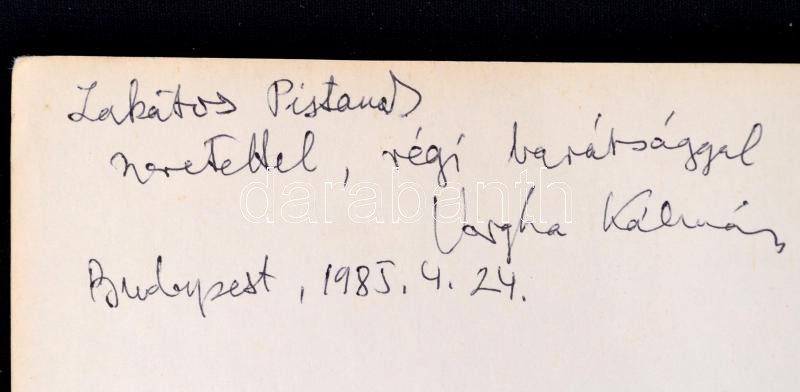 Lakatos Pistának
szeretettel, régi barátsággal
darabanth
Vargha Kálmán
Budapest, 1985. 4. 24.